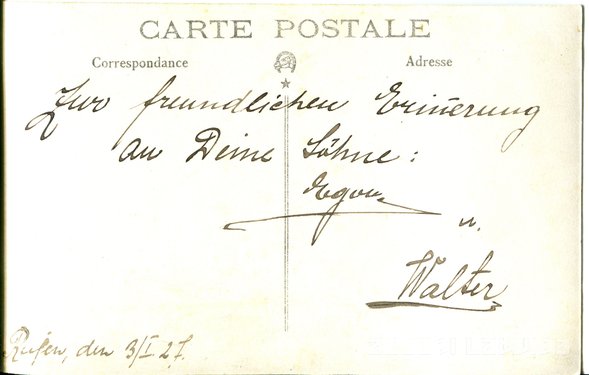 CARTE POSTALE
Correspondance
Adresse
Zur freundlichen Erin̄erung
an Deine Söhne:
Egon
u.
Walter
den 3/I 27.